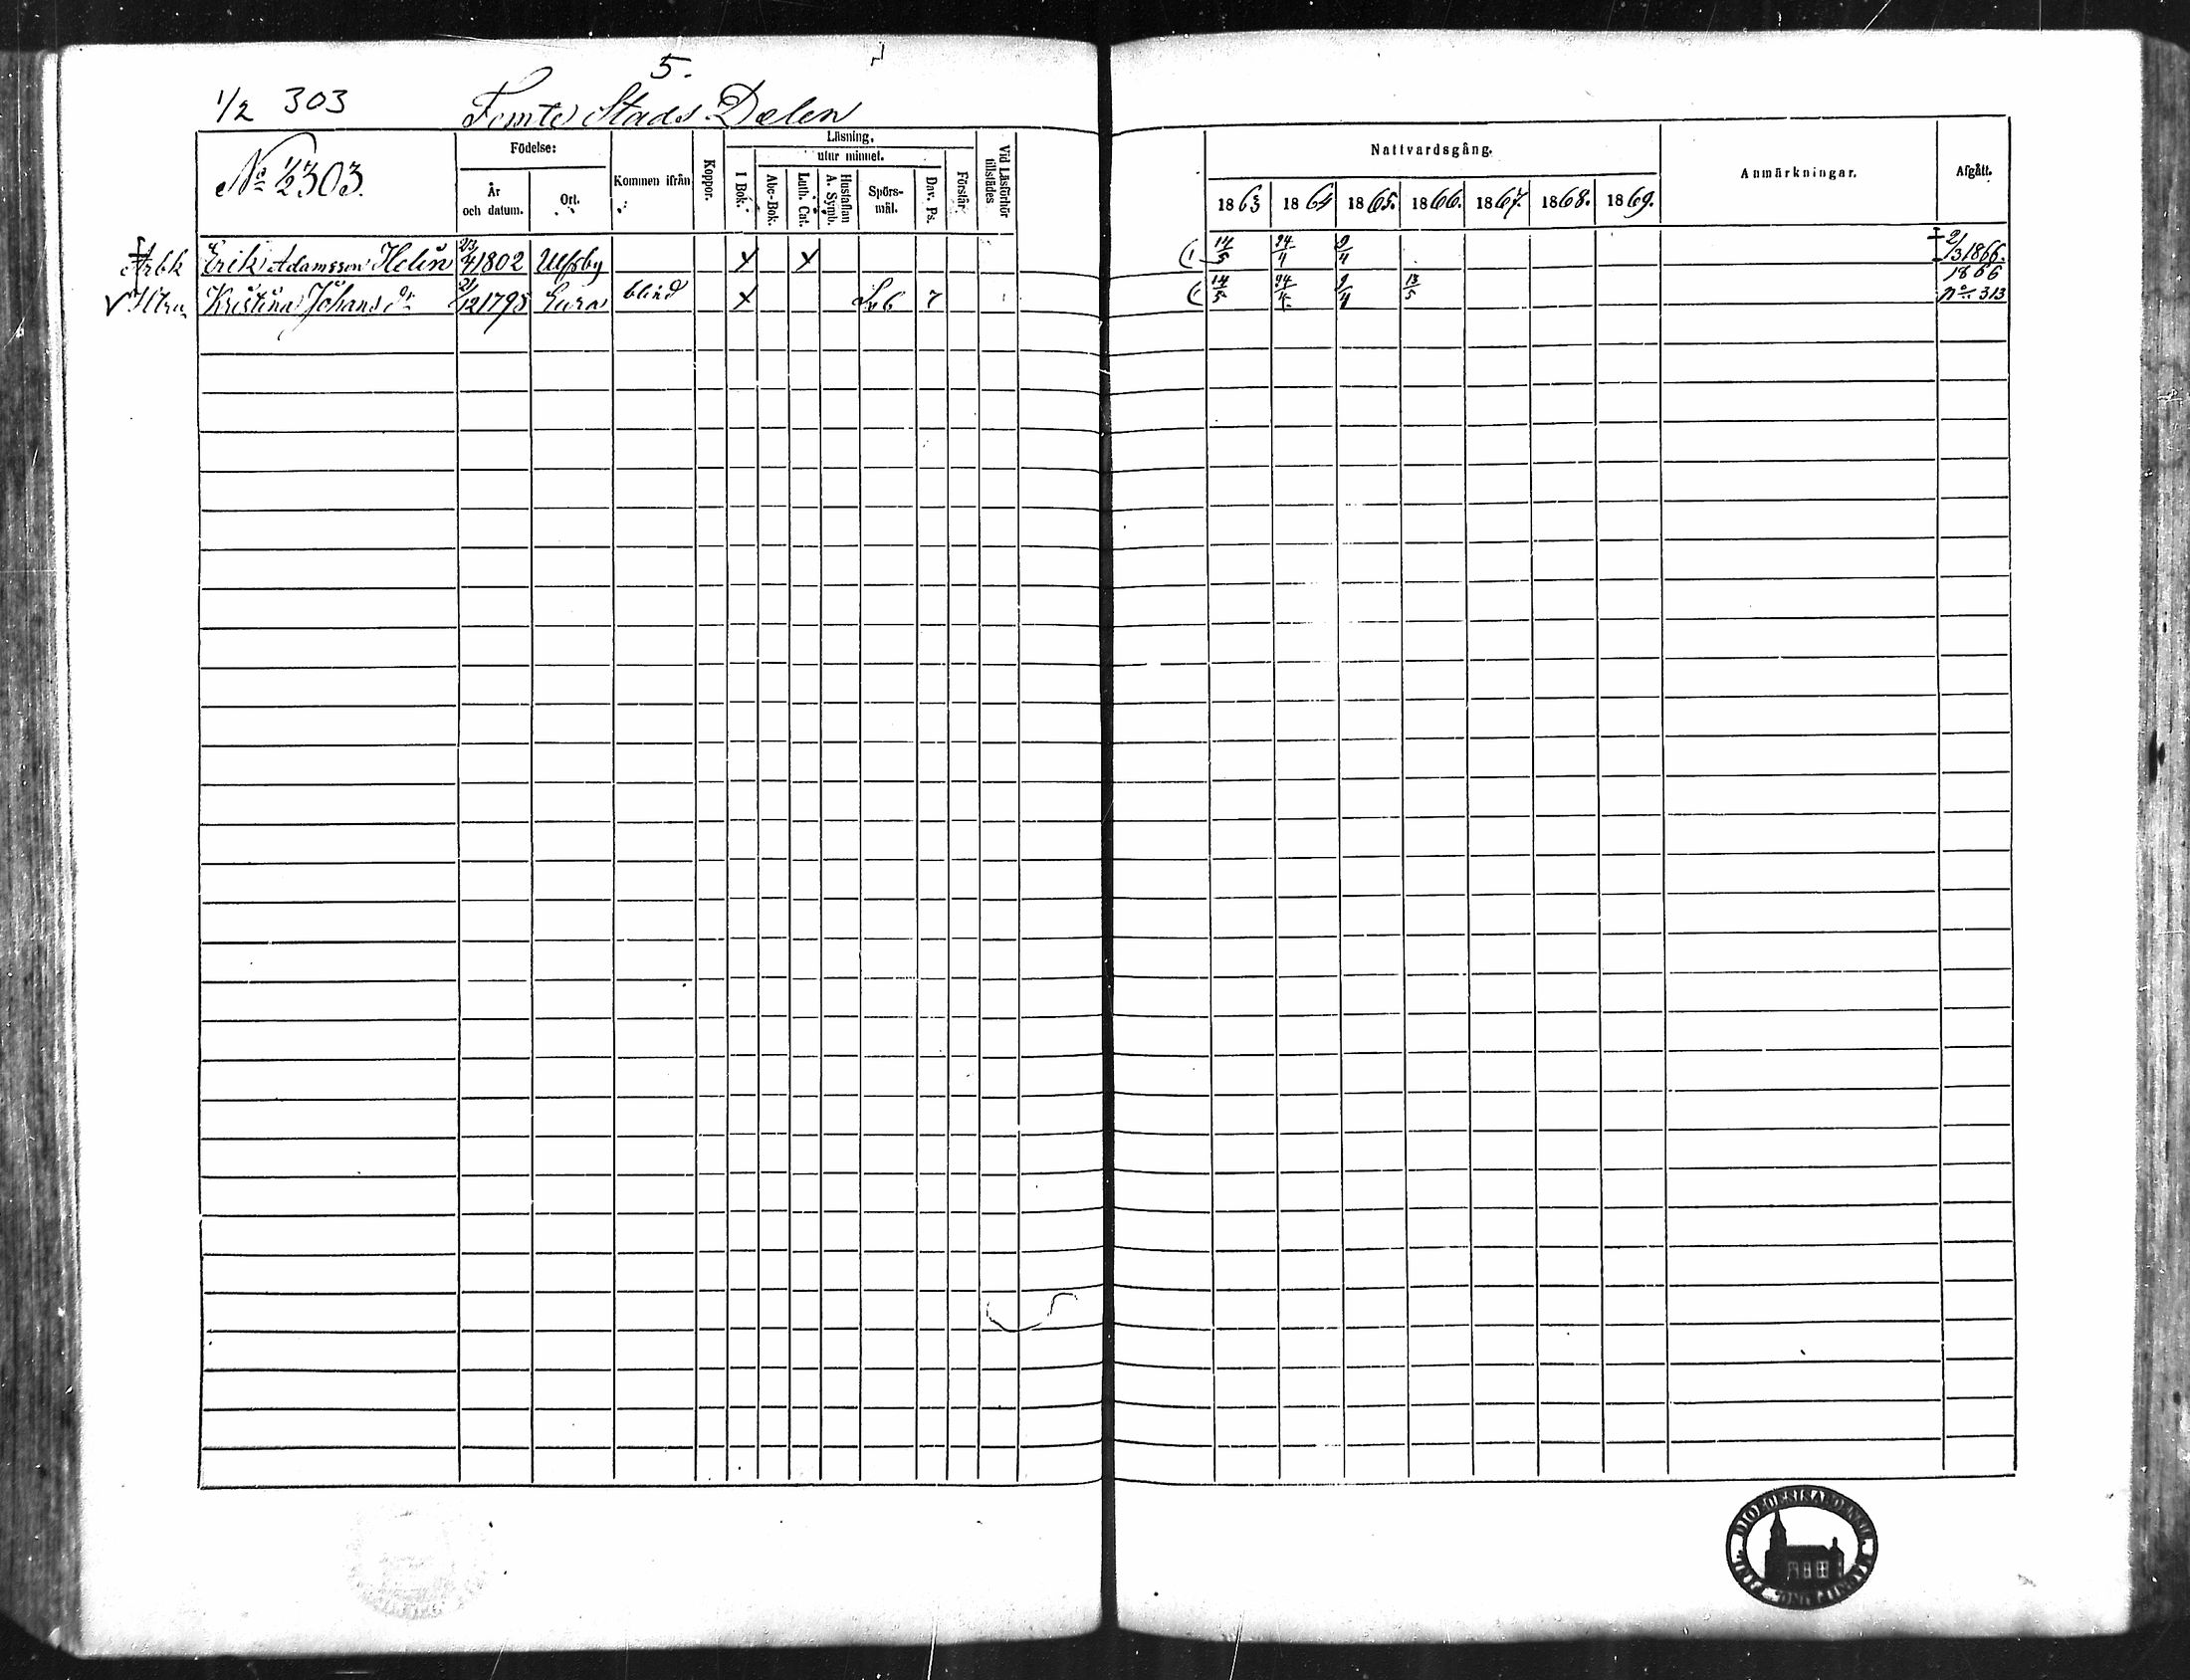 5.
1/2 303 Femte Stads Delen
No 1/2 303.
Födelse:
År och datum.
Ort.
Kommen ifrån
Koppor.
Läsning.
utur minnet.
I Bok.
Abc-Bok.
Luth. Cat.
Hustaflan A. Symb.
Spörs-mål.
Dav. Ps.
Förstår
Vid Läsförhör tillstädes
Nattvardsgång.
1863 1864 1865. 1866. 1867. 1868. 1869.
Anmärkningar.
Afgått.
Arbk Erik Adamsson Helin 23/4 1802 Ulfsby x x 14/5 24/4 9/4 2/3 1866.
Kristina Johansdr 21/12 1795 Eura blind x 7 14/5 24/4 9/4 13/5 1866 No 313